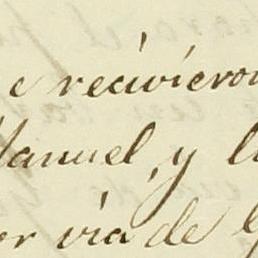 e recivieron
Manuel, y l
or via de